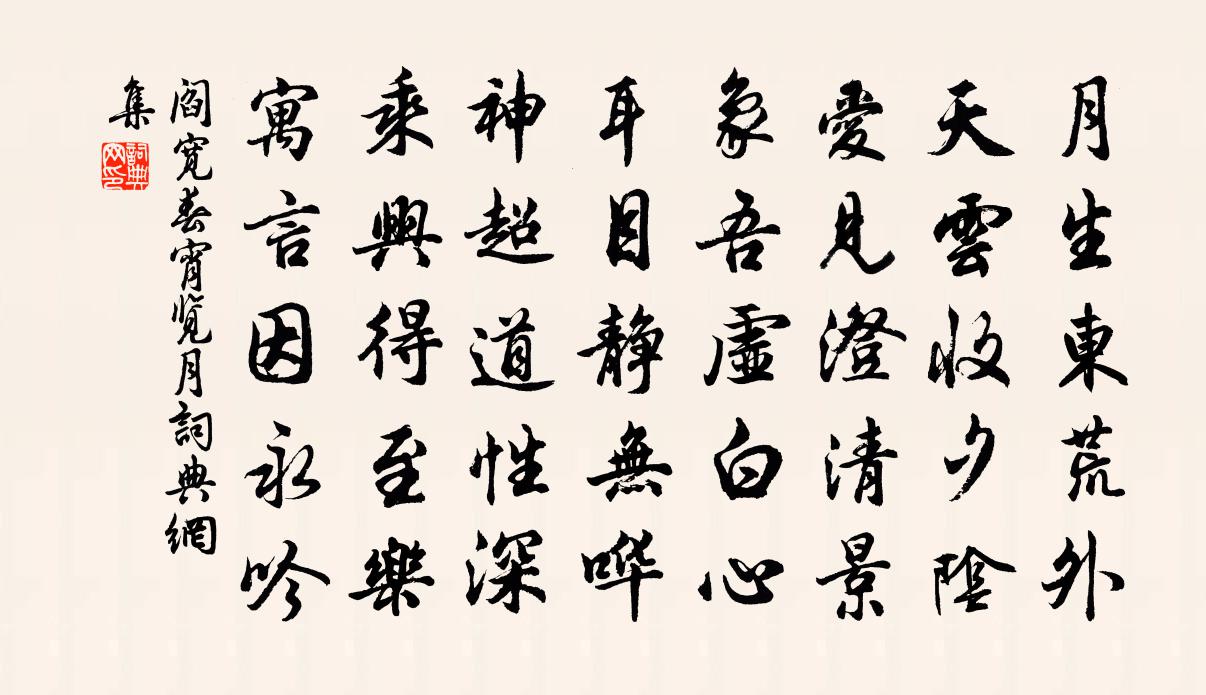 月生東荒外
天雲收夕陰
愛見澄清景
象吾虛白心
耳目靜無嘩
神超道性深
乘興得至樂
寓言因永吟
閻寬春宵覽月詞典網
集
詞典
网印